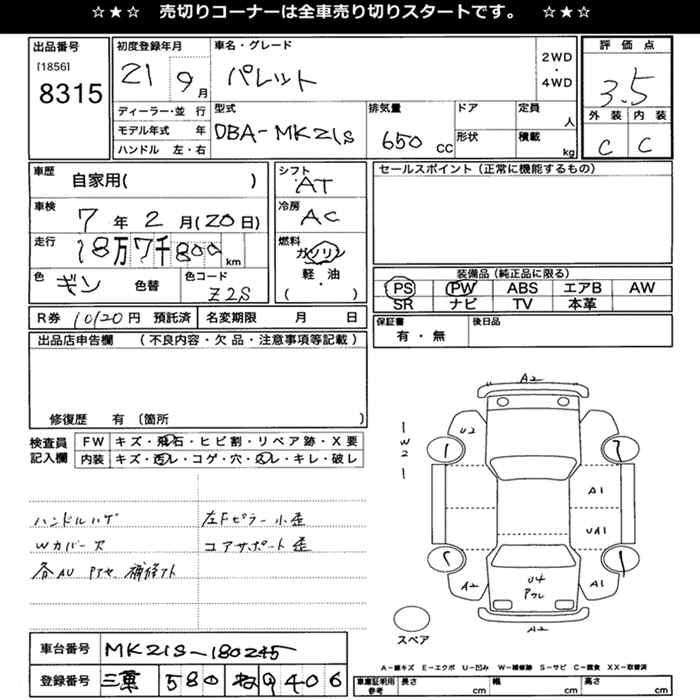 ☆★☆ 売切りコーナーは全車売り切りスタートです。 ☆★☆
出品番号
[1856]
8315
初度登録年月
21 9月
車名・グレード
パレット
2WD
・
4WD
評価点
3.5
外装 内装
C C
ディーラー・並行
モデル年式 年
ハンドル 左・右
型式
DBA-MK21S
排気量
650 cc
ドア
形状
定員
人
積載
kg
車歴
自家用( )
車検
7年2月(20日)
走行
18万7千800km
色
ギン 色替
色コード
Z2S
シフト
AT
冷房
AC
燃料
ガソリン
軽・油
( )
セールスポイント(正常に機能するもの)
装備品(純正品に限る)
PS PW ABS エアB AW
SR ナビ TV 本革
R券 10120円 預託済 名変期限 月 日
保証書
有・無
後日品
出品店申告欄 (不良内容・欠品・注意事項等記載)
修復歴 有(箇所 )
検査員
記入欄
FW キズ・飛石・ヒビ割・リペア跡・X要
内装 キズ・汚レ・コゲ・穴・スレ・キレ・破レ
ハンドルハゲ
Wカバー欠
各AU Pアセ 補修アト
左Fピラー小歪
コアサポート歪
1
W
2
1
A2
U2
A1
UA1
U4
Pアレ
A2
A1
A2
スペア
A-線キズ E-エクボ U-凹み W-補修跡 S-サビ C-腐食 XX-取替済
車台番号
MK21S-180245
登録番号
三重 580 ね 9406
車庫証明用
参考
長さ cm 幅 cm 高さ cm